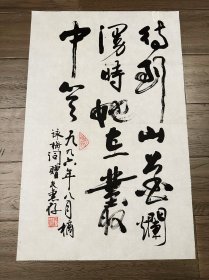 待到山花爛
漫時她在叢
中笑
一九九六年八月摘
詠梅 惠存